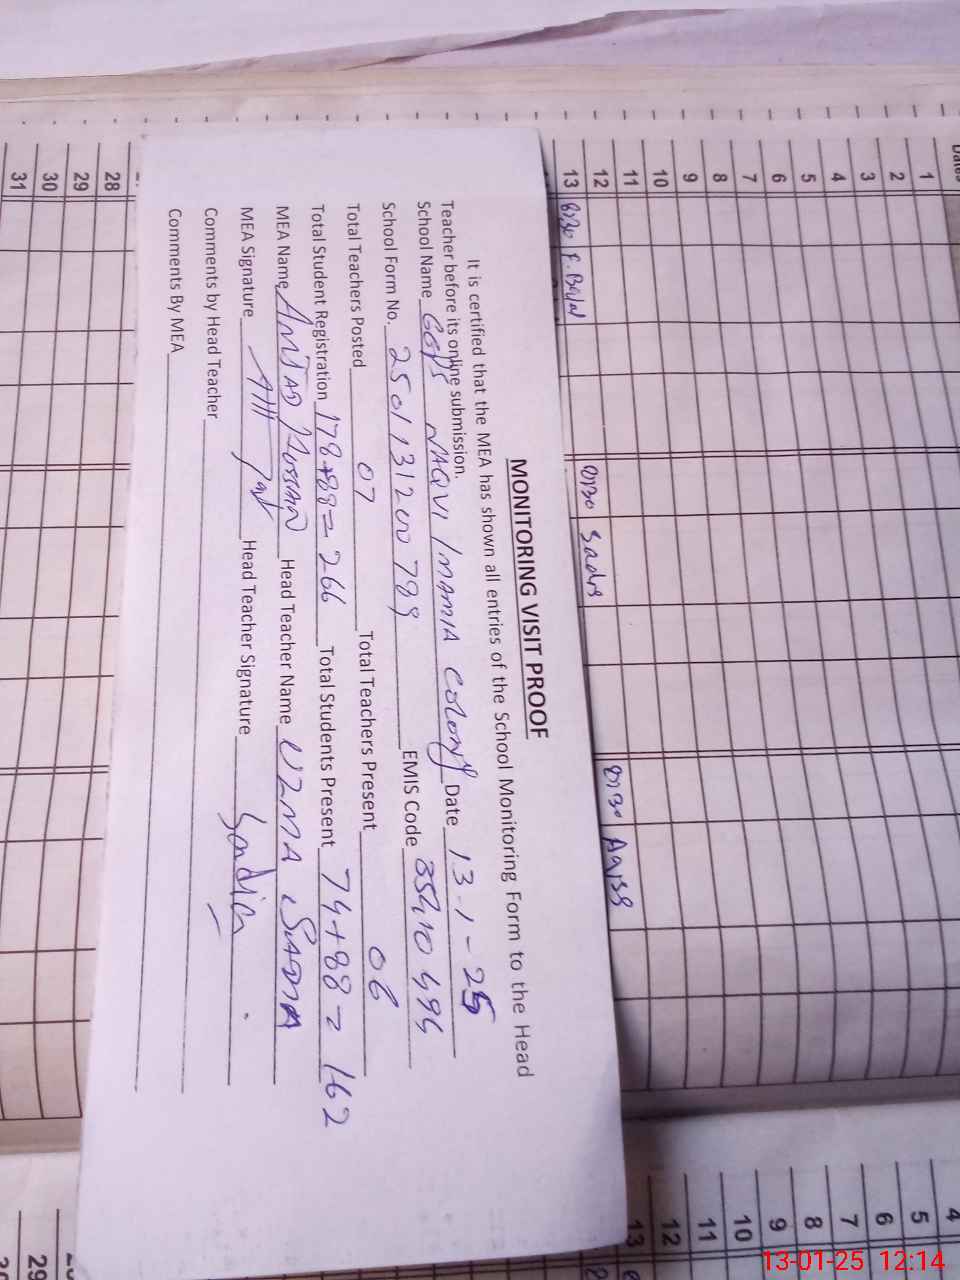 MONITORING VISIT PROOF
It is certified that the MEA has shown all entries of the School Monitoring Form to the Head
Teacher before its online submission.
School Name GGPS NAQVI IMAMIA COLONY Date 13-1-25
School Form No. 2501131200789 EMIS Code 35410496
Total Teachers Posted 07 Total Teachers Present 06
Total Student Registration 178+88= 266 Total Students Present 74+88= 162
MEA Name AMJAD Head Teacher Name UZMA SADIA
MEA Signature Head Teacher Signature Sadia
Comments by Head Teacher
Comments By MEA
Dates
1
2
3
4
5
6
7
8
9
10
11
12
13
28
29
30
31
0830 F. Belal
0830 Sadia
0830
4
5
6
7
8
9
10
11
12
13
29
13-01-25 12:14